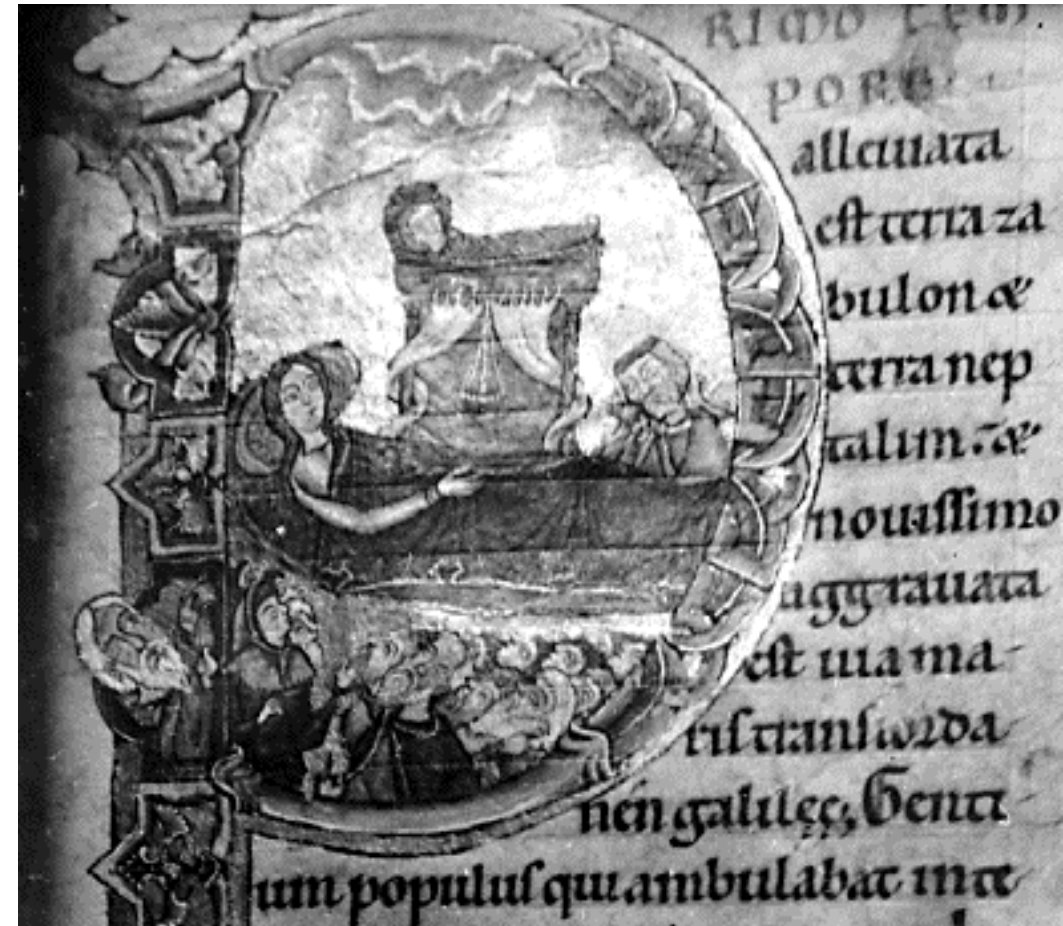 RIMO TEM
PORE
allevıata
est terra za
bulon &
terra nep
talim: &
nouissimo
aggrauata
est uia ma-
ris transiorda
nen galileę; Genti-
um populus qui ambulabat in te-